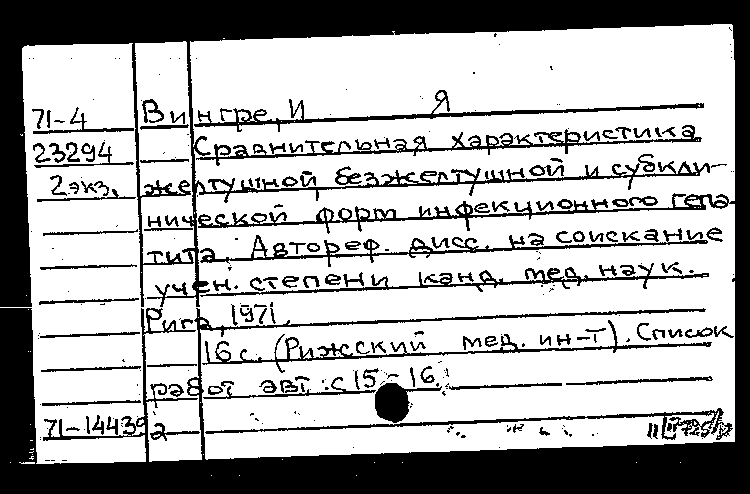 71-4 Вингре, И Я
23294 Сравнительная характеристика
2 экз. желтушной, безжелтушной и субкли-
нической форм инфекционного гепа-
тита. Автореф. дисс. на соискание
учен. степени канд. мед. наук.
Рига, 1971.
16 с. (Рижский мед. ин-т). Список
работ авт.: с 15-16.
71-14439 а